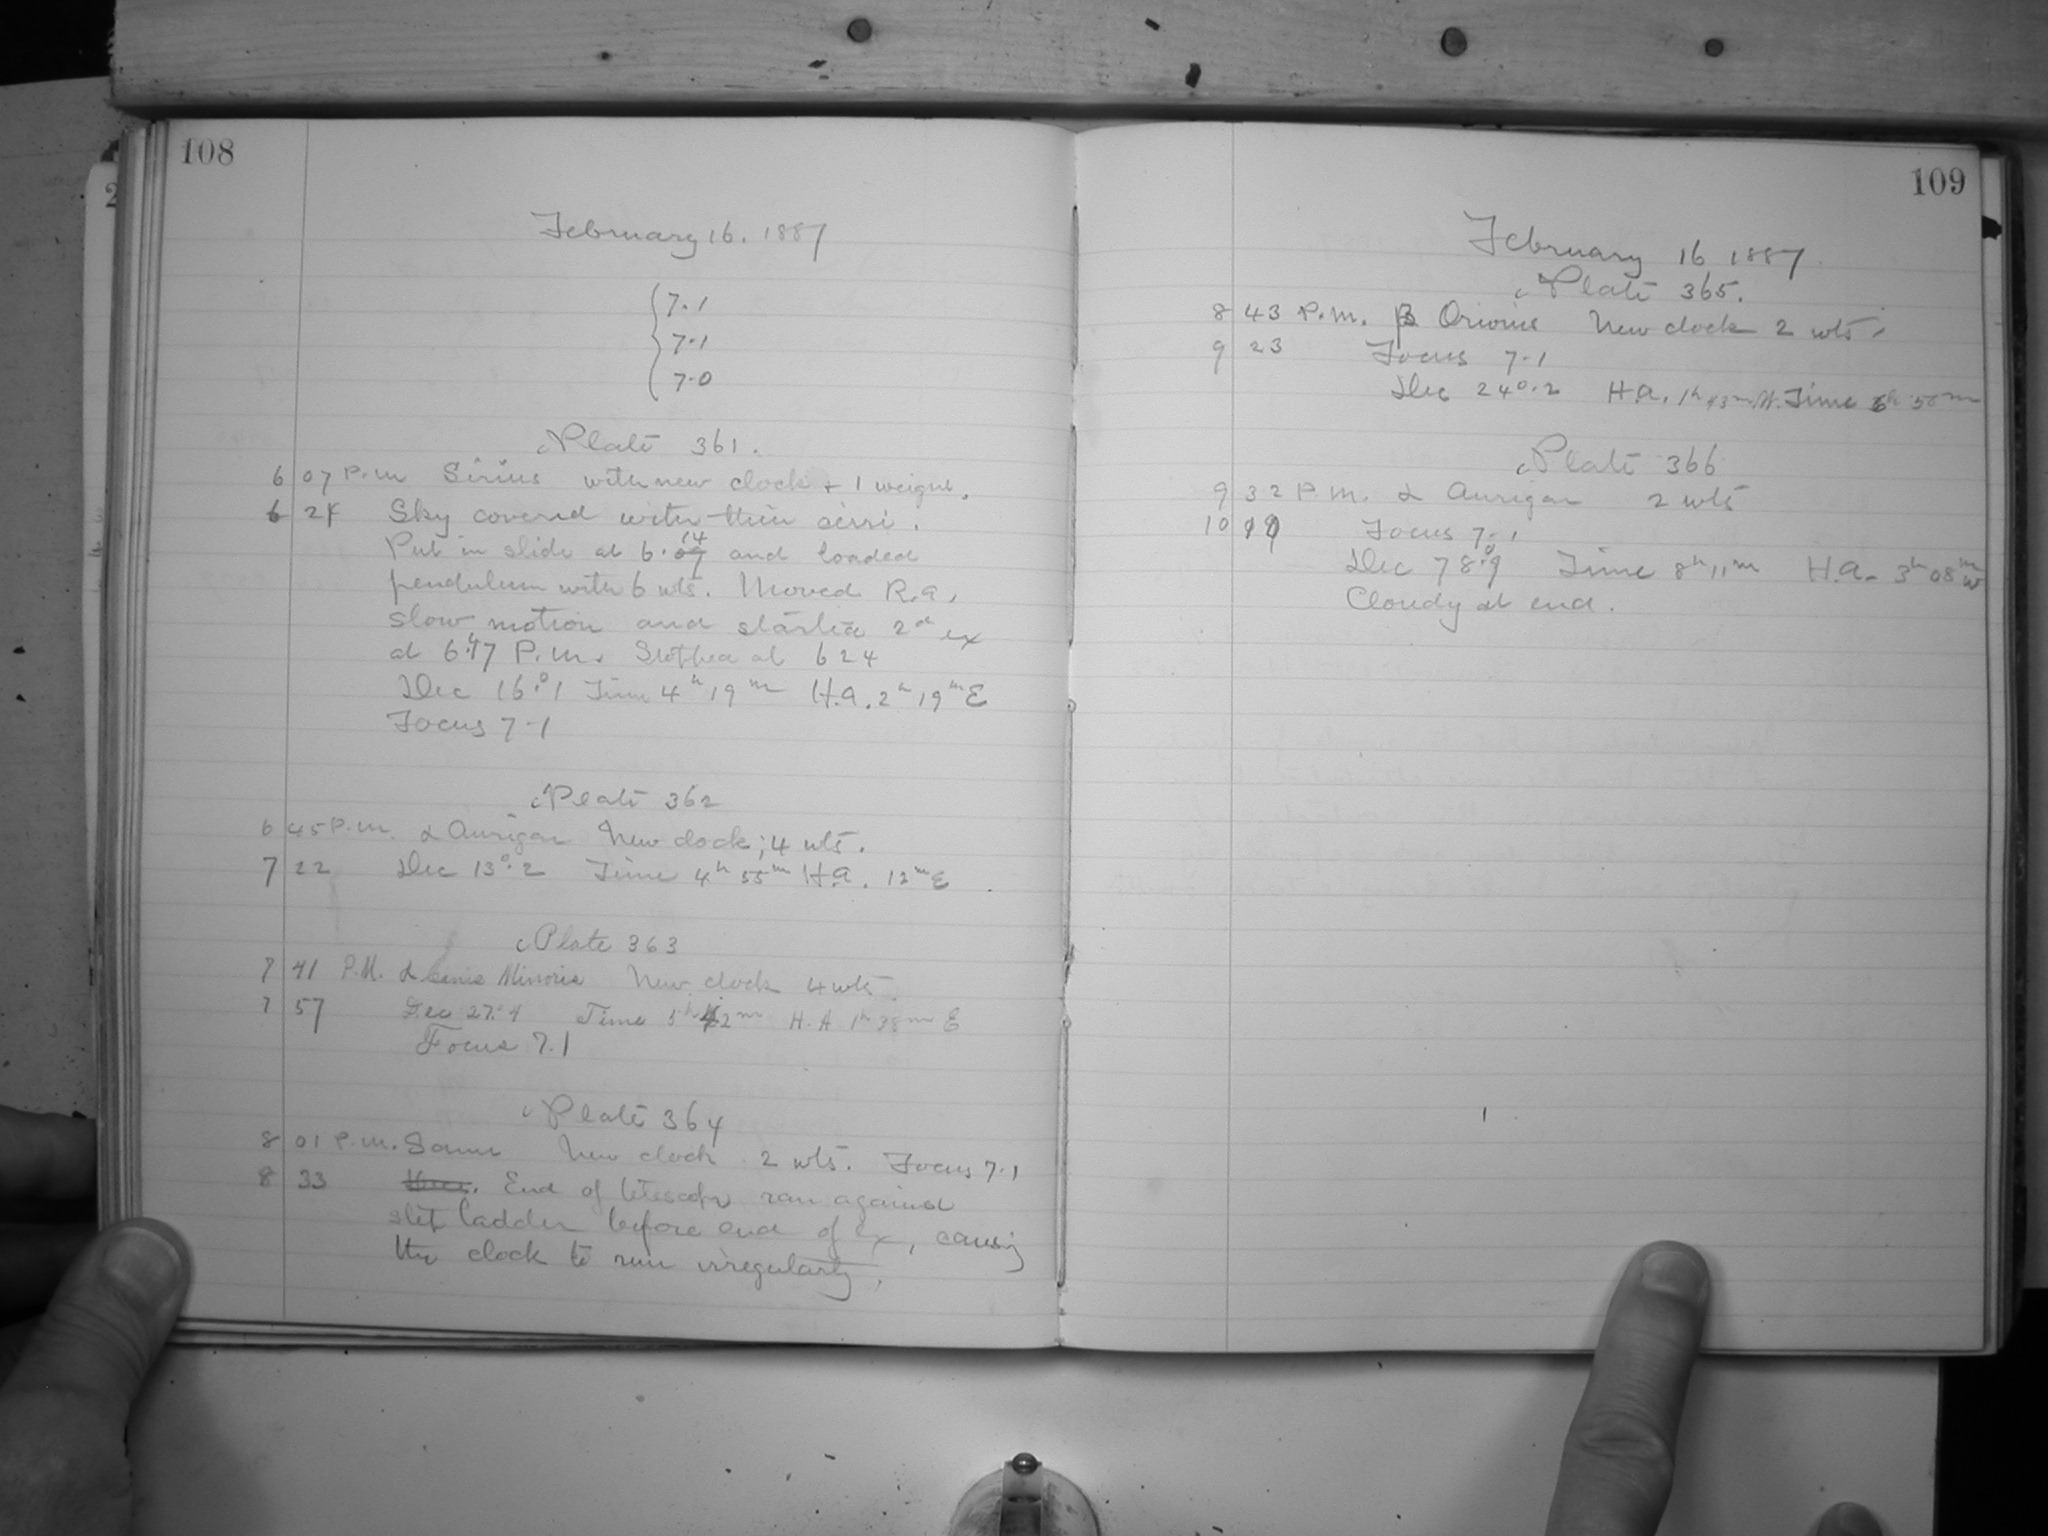 108
February 16. 1887
7.1
7.1
7.0
Plate 361.
6 07 P.m Sirius with new clock + 1 weight.
6 24 Sky covered with thin cirri.
Put in slide at 6.14 and loaded
pendulum with 6 wts. Moved R.a.
slow motion and started 2d ex
at 6.17 P.m. Stopped at 6 24
Dec 16°.1 Time 4h 19m H.a. 2h 19m E
Focus 7.1
Plate 362
6 45 P.m. α Aurigae New clock; 4 wts.
7 22 Dec 13°.2 Time 4h 55m H.a. 12m E
Plate 363
7 41 P.M. α Canis Minoris New clock 4 wts.
7 57 Dec 27°.4 Time 5h 42m H.A 1h 38m E
Focus 7.1
Plate 364
8 01 P.m. Same New clock 2 wts. Focus 7.1
8 33 End of telescope ran against
step ladder before end of ex, causing
the clock to run irregularly.
2
109
February 16 1887
Plate 365.
8 43 P.m. β Orionis New clock 2 wts.
9 23 Focus 7.1
Dec 24°.2 H.a. 1h 43m W. Time 6h 58m
Plate 366
9 32 P.m. α Aurigae 2 wts
10 Focus 7.1
Dec 78°.9 Time 8h 11m H.a. 3h 08m W
Cloudy at end.